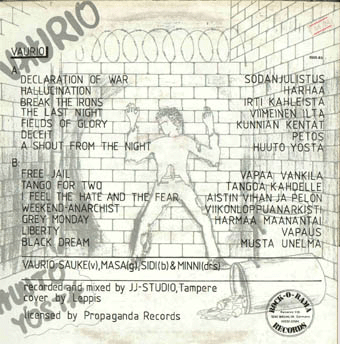 VAURIO
VAURIO
A:
DECLARATION OF WAR SODANJULISTUS
HALLUCINATION HARHAA
BREAK THE IRONS IRTI KAHLEISTA
THE LAST NIGHT VIIMEINEN ILTA
FIELDS OF GLORY KUNNIAN KENTÄT
DECEIT PETOS
A SHOUT FROM THE NIGHT HUUTO YÖSTÄ
B:
FREE JAIL VAPAA VANKILA
TANGO FOR TWO TANGOA KAHDELLE
FEEL THE HATE AND THE FEAR AISTIN VIHAN JA PELON
WEEKEND-ANARCHIST VIIKONLOPPUANARKISTI
GREY MONDAY HARMAA MAANANTAI
LIBERTY VAPAUS
BLACK DREAM MUSTA UNELMA
VAURIO: SAUKE(v), MASA(g), SIDI(b) & MINNI(drs)
recorded and mixed by JJ-STUDIO, Tampere
cover by Leppis
licensed by Propaganda Records
YOSTA
ROCK-O-RAMA
RECORDS